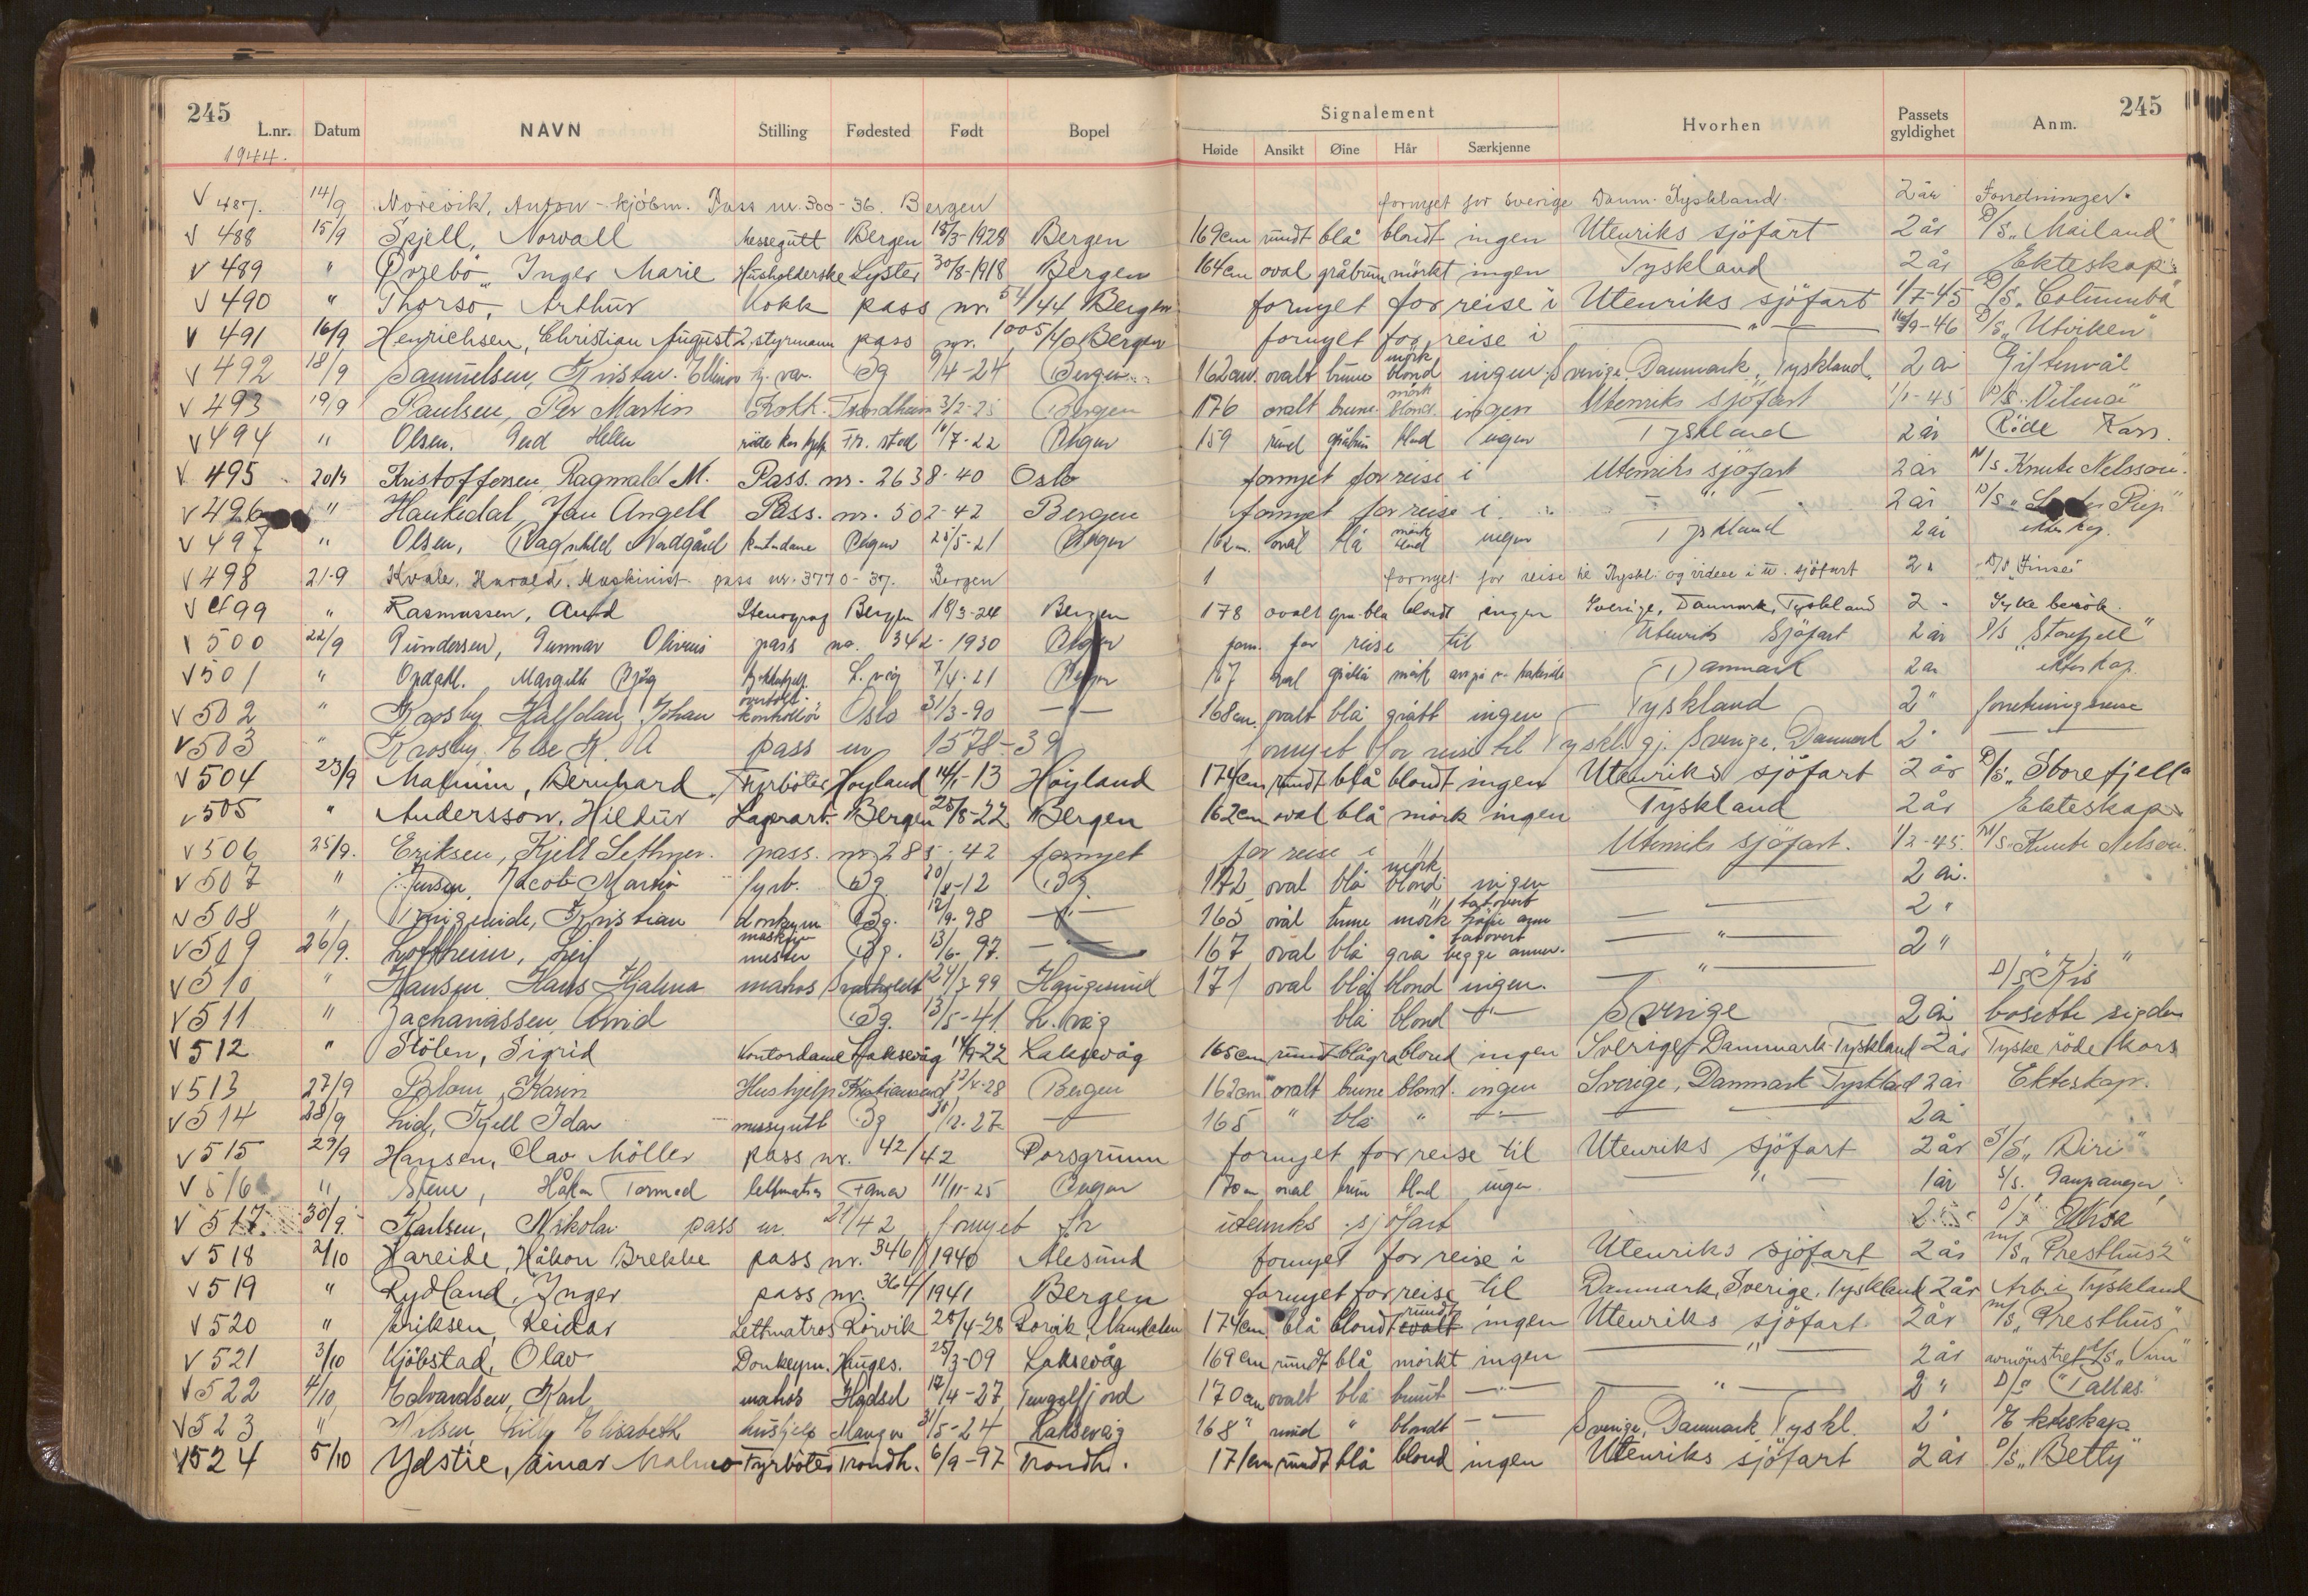 245 245
Signalement
L.nr. Datum NAVN Stilling Fødested Født Bopel Høide Ansikt Øine Hår Særkjenne Hvorhen Passets gyldighet Anm.
1944.
V 487. 14/9 Norevik, Anton - kjöbm. Pass nr. 300-36. Bergen fornyet for Sverige Danm. Tyskland 2 år Forretninger.
V 488 15/9 Spjell, Norvall Messegutt Bergen 15/3-1928 Bergen 169cm rundt blå blondt ingen Utenriks sjöfart 2 år D/S „Mailand"
V 489 " Örzebö, Inger Marie Husholderske Lyster 30/8-1918 Bergen 164cm oval gråbrun mörkt ingen Tyskland 2 år Ekteskap
V 490 " Thorsö, Arthur Kokk pass nr. 54/44 Bergen fornyet for reise i Utenriks sjöfart 1/7-45 D/S „Columba"
V 491 16/9 Henrichsen, Christian August 2. styrmann pass nr. 1005/40 Bergen fornyet for reise i — " — 16/9-46 D/S „Utviken"
V 492 18/9 Samuelsen, Kristav. Ellinor Bg 9/4-24 Bergen 162cm. ovalt brune mörk blond ingen Sverige, Danmark, Tyskland 2 å Giftermål
V 493 19/9 Paulsen, Per Martin Kokk. Trondheim 3/2-25 Bergen 176 ovalt brune mörk blond ingen Utenriks sjöfart 1/1-45 D/S „Vilma"
V 494 " Olsen, Gud Helen röde kors hjelp Kr. sted 10/7-22 Bergen 159 rund gråbrun blond ingen Tyskland 2 år Röde Kors.
V 495 20/9 Kristoffersen, Ragnvald M. Pass. nr. 2638-40 Oslo fornyet for reise i Utenriks sjöfart 2 år M/S Knute Nelsson".
V 496 " Haukedal, Jan Angell Pass. nr. 502-42 Bergen fornyet for reise i — " — 2 år D/S „
V 497 " Olsen, Ragnhild Nordgård kontordame Bergen 25/5-21 Bergen 162cm. oval blå mörk blond ingen Tyskland 2 år ekteskap.
V 498 21-9 Kvale, Harald. Maskinist pass nr. 3770-37. Bergen fornyet for reise til Tyskl. og videre i u. sjöfart 2 " D/S „Finse"
V 499 " Rasmussen, Aud Stenograf Bergen 18/3-24 Bergen 178 ovalt grå-blå blondt ingen Sverige, Danmark, Tyskland 2 - Syke besök.
V 500 22/9 Gundersen, Gunnar Olivius pass no. 342-1930 Bergen forn. for reise til Utenriks Sjöfart 2 år D/S „Storefjell"
V 501 " Opdahl, Margith Bjørg L. våg 7/4-21 Bergen 167 oval gråblå mörk arr på v. hakeside Danmark 2 år ekteskap
V 502 " Krosby Halfdan Johan overtoll kontrollør Oslo 31/3-90 — " — 168cm. ovalt blå grått ingen Tyskland 2 " forretningsreise
V 503 " Krosby. Else K. A pass nr 1578-39 fornyet for reise til Tyskl. gj. Sverige, Danmark 2 " —
V 504 23/9 Malmin, Bernhard Fyrböter Höyland 14/1-13 Höyland 174cm rundt blå blondt ingen Utenriks sjöfart 2 år D/S „Storefjell"
V 505 " Andersson, Hildur Lagerarb. Bergen 25/8-22 Bergen 162cm oval blå mörk ingen Tyskland 2 år Ekteskap
V 506 25/9. Eriksen, Kjell Sethmer. pass. nr. 285-42 fornyet for reise i Utenriks sjöfart. 1/2-45. M/S „Knute Nelson".
V 507 " Jensen, Jacob Martin fyrb. Bg 20/8-12 Bg 172 oval blå mörk blond ingen — " — 2 år.
V 508 " Kristian donkeym Bg. 12/9. 98 — " — 165 oval brune mörk tatovert höire arm — " — 2 "
V 509 26/9. Loftheim, Leif maskin mester Bg. 13/6-97. — " — 167 oval blå grå tatovert begge armer. — " — 2 "
V 510 " Hansen Hans Hjalmar matros 24/3 99 Haugesund 171 oval blå blond ingen. — " — D/S „Kis"
V 511 " Zachariassen Arvid Bg. 13/5-41. L. våg blå blond — " — Sverige 2 år bosette sig der
V 512 " Stölen, Sigrid Kontordame Laksevåg 14/9-22 Laksevåg 165cm rundt blågrå blond ingen Sverige-Danmark-Tyskland 2 år Tyske röde kors
V 513 27/9 Blom, Karin Hushjelp Kristiansund 17/8-28 Bergen 162cm ovalt brune blond. ingen Sverige, Danmark Tyskland 2 år Ekteskap.
V 514 28/9 Lid, Kjell Idar messegutt Bg 30/12-27 — " — 165 " blå " — " — — 2 å
V 515 29/9 Hansen, Olav Möller pass nr. 42/42 Porsgrunn fornyet for reise til Utenriks sjöfart 2 år S/S „Diri"
V 516 " Stene, Håkon Tormod lettmatros Fana 11/11-25 Bergen 170cm oval brun blond ingen — " — 1 år S/S. Gaupanger
V 517 30/9. Karlsen, Nikolai pass nr 21/42 fornyet for utenriks sjöfart D/S „Ursa"
V 518 2/10 Hareide, Håkon Brekke pass nr. 346/1940 Ålesund fornyet for reise i Utenriks sjöfart 2 år M/S „Presthus"
V 519 " Rydland, Inger pass nr. 364/1941 Bergen fornyet for reise til Danmark, Sverige, Tyskland 2 år Arb. i Tyskland
V 520 " Eriksen, Reidar Lettmatros Rörvik 28/4-28 Rörvik, Namdalen 174cm blå blondt rundt ovalt ingen Utenriks sjöfart 2 år M/S „Presthus"
V 521 3/10 Kjöbstad, Olav Donkeym. Hauges. 25/3-09 Laksevåg 169cm rundt blå mörkt ingen — " — 2 år avmönstret
V 522 4/10 Edvardsen, Karl matros Hadsel 12/4-27 Tengelfjord 170cm ovalt blå brunt — " — — " — 2 " D/S „Pallas"
V 523 " Nilsen, Lilly Elisabeth hushjelp Manger 31/5-24 Laksevåg 168 " rund " blondt — " — Sverige, Danmark Tyskl. 2 " Ekteskap
V 524 5/10 Ydstie, Einar Malmo Fyrböter Trondh. 6/9-97 Trondh. 171cm rundt blå blond ingen Utenriks sjöfart 2 år D/S „Betty"